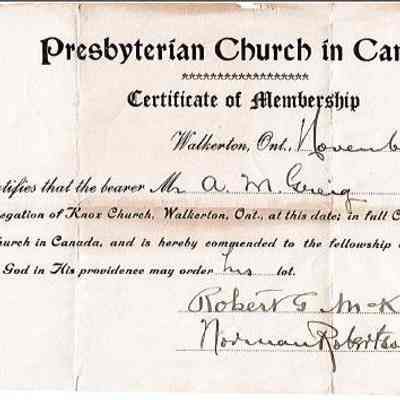 Presbyterian Church in Can
Certificate of Membership
Walkerton, Ont., Novemb
tifies that the bearer Mr A. M. Greig
egation of Knox Church, Walkerton, Ont., at this date; in full C
hurch in Canada, and is hereby commended to the fellowship
God in His providence may order his lot.
Robert G McK
Norman Roberts